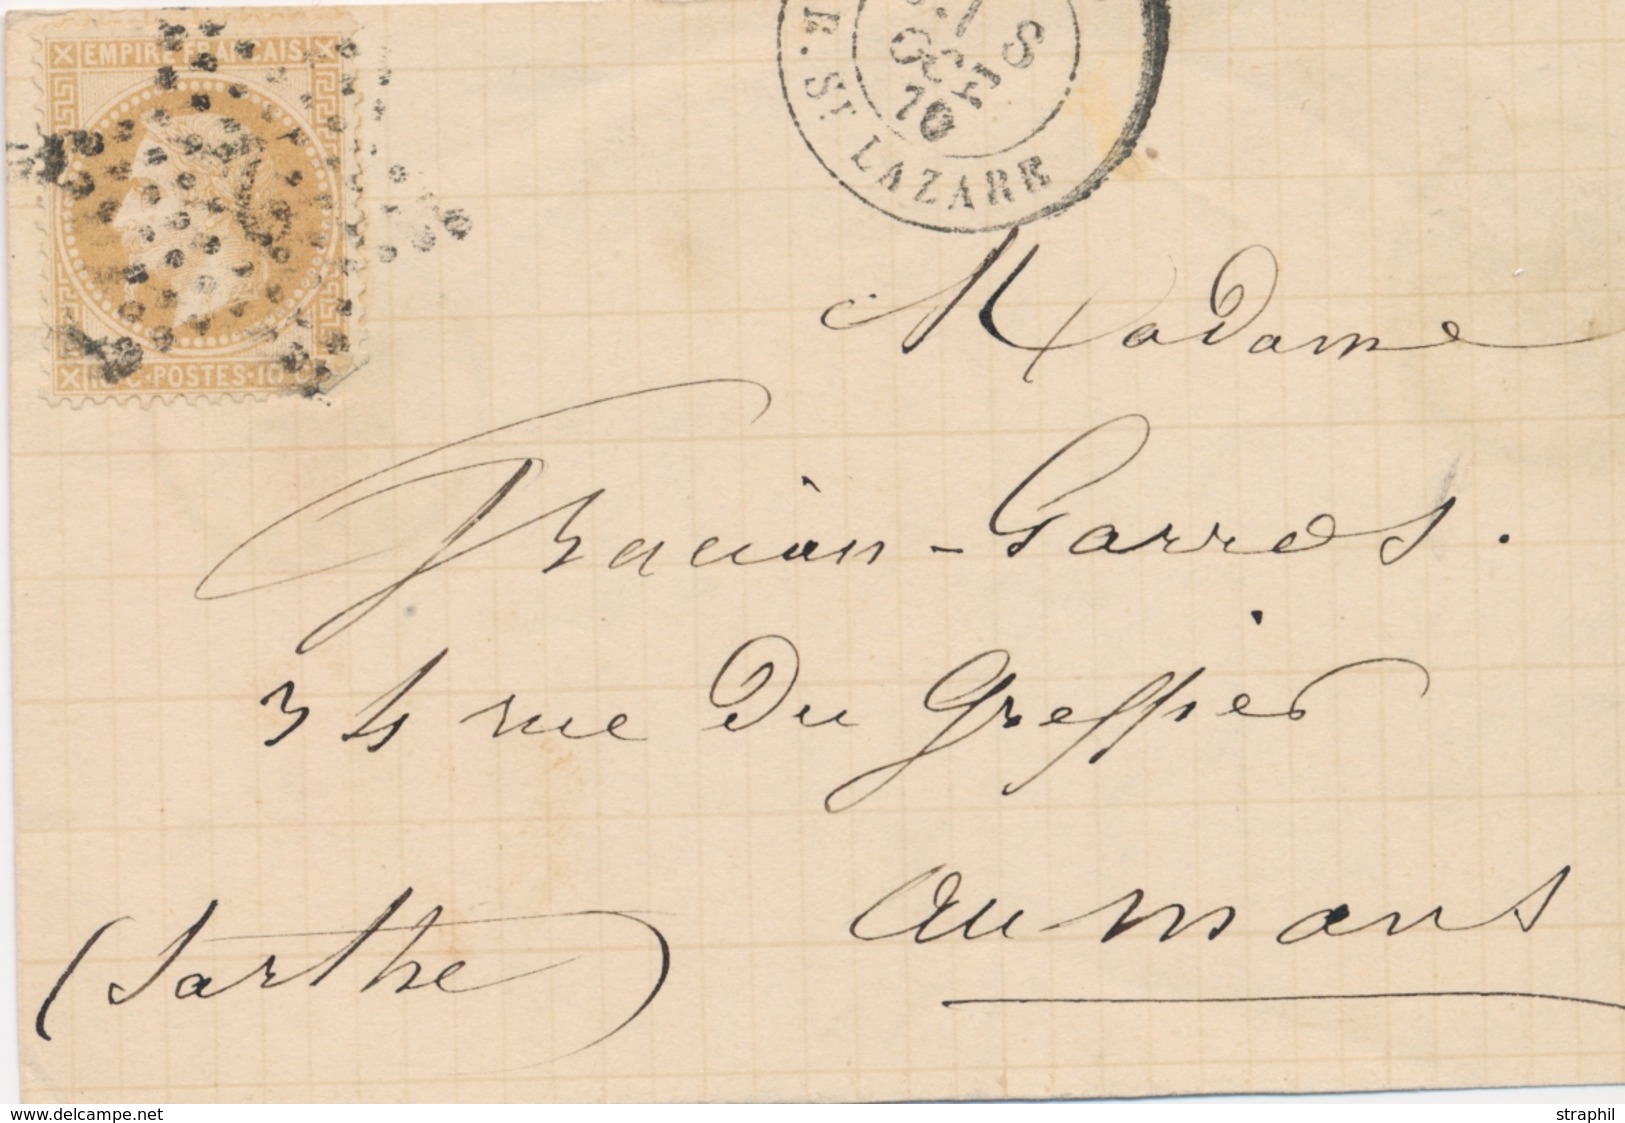 EMPIRE FRANÇAIS
10 C·POSTES·10 C
R. ST LAZARE
8
OCT
70
Madame
Gracian-Garros.
34 rue du Greffier
au mans
(Sarthe)
www.delcampe.net
straphil